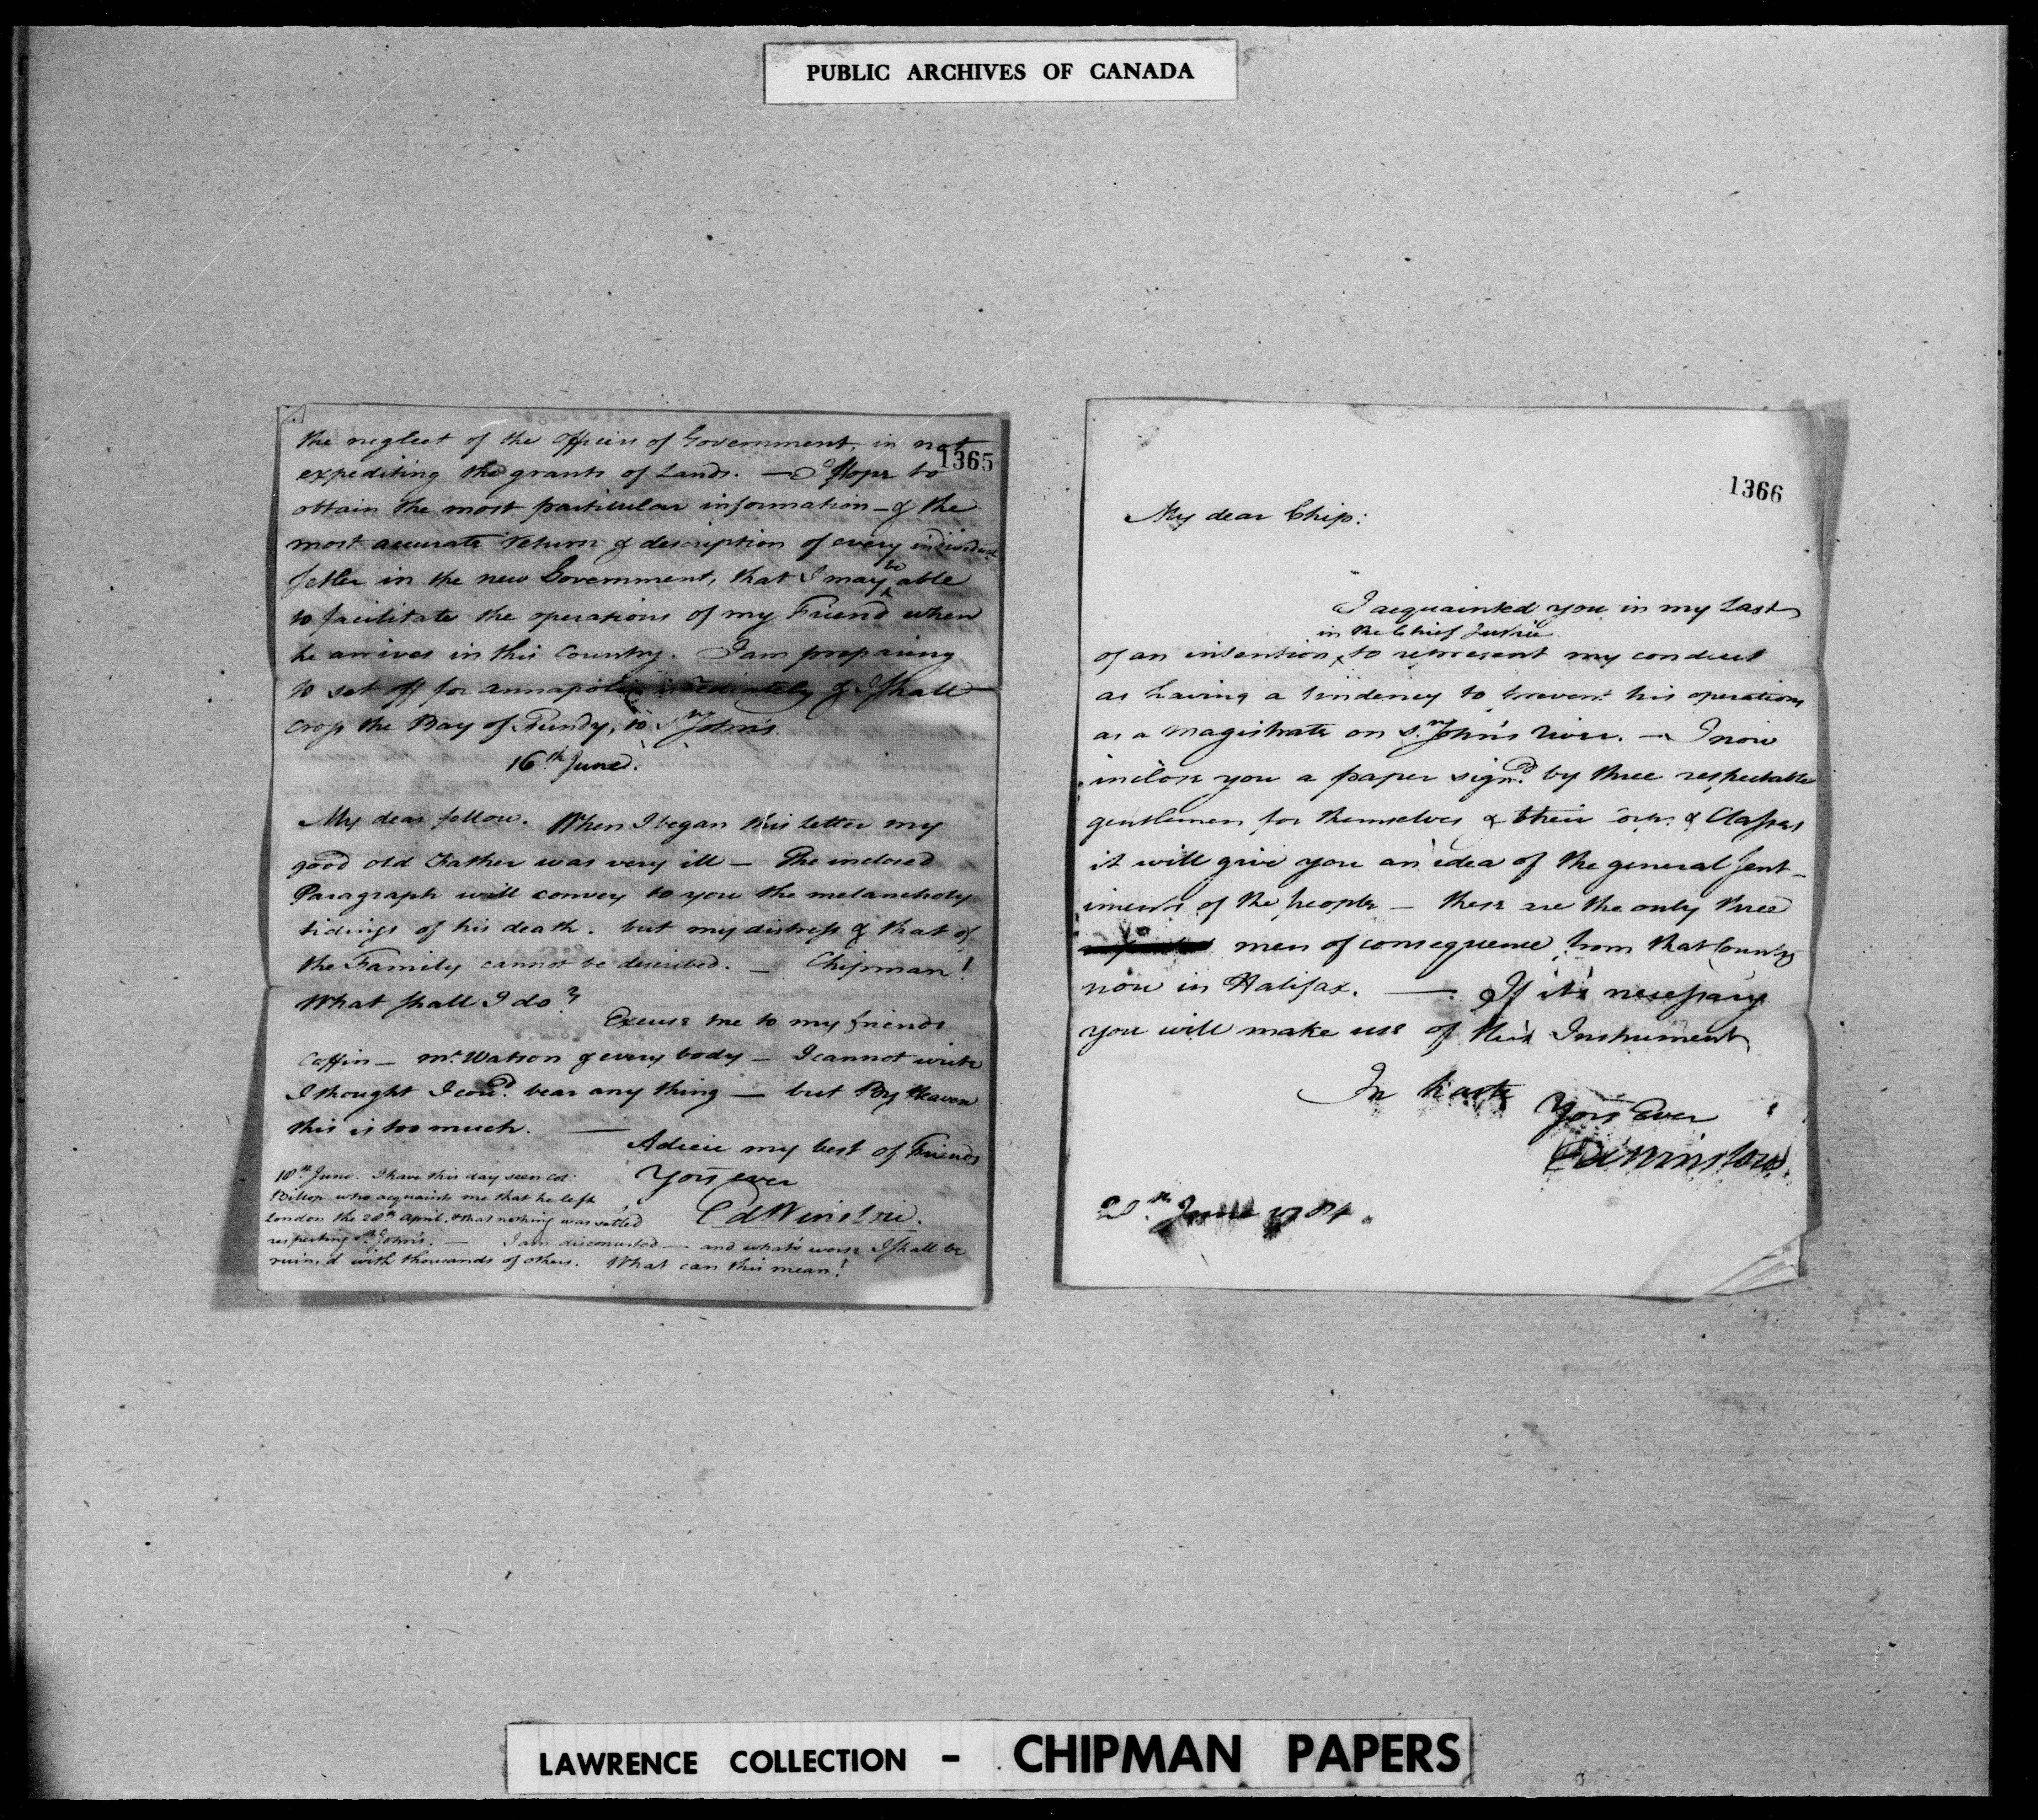 PUBLIC ARCHIVES OF CANADA
1365
the neglect of the Officers of Government, in not
expediting the grants of Lands. — I Hope to
obtain the most particular information — & the
most accurate return & description of every individual
settler in the new Government, that I may be able
to facilitate the operations of my Friend when
he arrives in this Country. I am preparing
to set off for annapolis immediately & I shall
cross the Bay of Fundy, to St. John's.
16th June.
My dear fellow. When I began this Letter my
good old Father was very ill — The inclosed
Paragraph will convey to you the melancholy
tidings of his death. but my distress & that of
the Family cannot be described. — Chipman!
What shall I do?
Excuse me to my friends
Coffin — Mr. Watson & every body — I cannot write
I thought I cou'd bear any thing — but By Heaven
this is too much. —
Adieu my best of Friends
Yours ever
Ed Winslow.
18th June. I have this day seen Col:
who acquaints me that he left
London the 20th April, & that nothing was settled
respecting St. John's. — I am disconcerted — and what's worse I shall be
ruin'd with thousands of others. What can this mean!
1366
My dear Chip:
I acquainted you in my Last
of an intention in the Chief Justice to represent my conduct
as having a tendency to prevent his operations
as a magistrate on St. John's River. — I now
inclose you a paper sign'd by three respectable
gentlemen for themselves & their & Classes
it will give you an idea of the general sent-
iments of the people — these are the only three
men of consequence from that County
now in Halifax. — If it's necessary
you will make use of this Instrument
In haste
Yours Ever
Ed Winslow.
June 1784.
LAWRENCE COLLECTION - CHIPMAN PAPERS